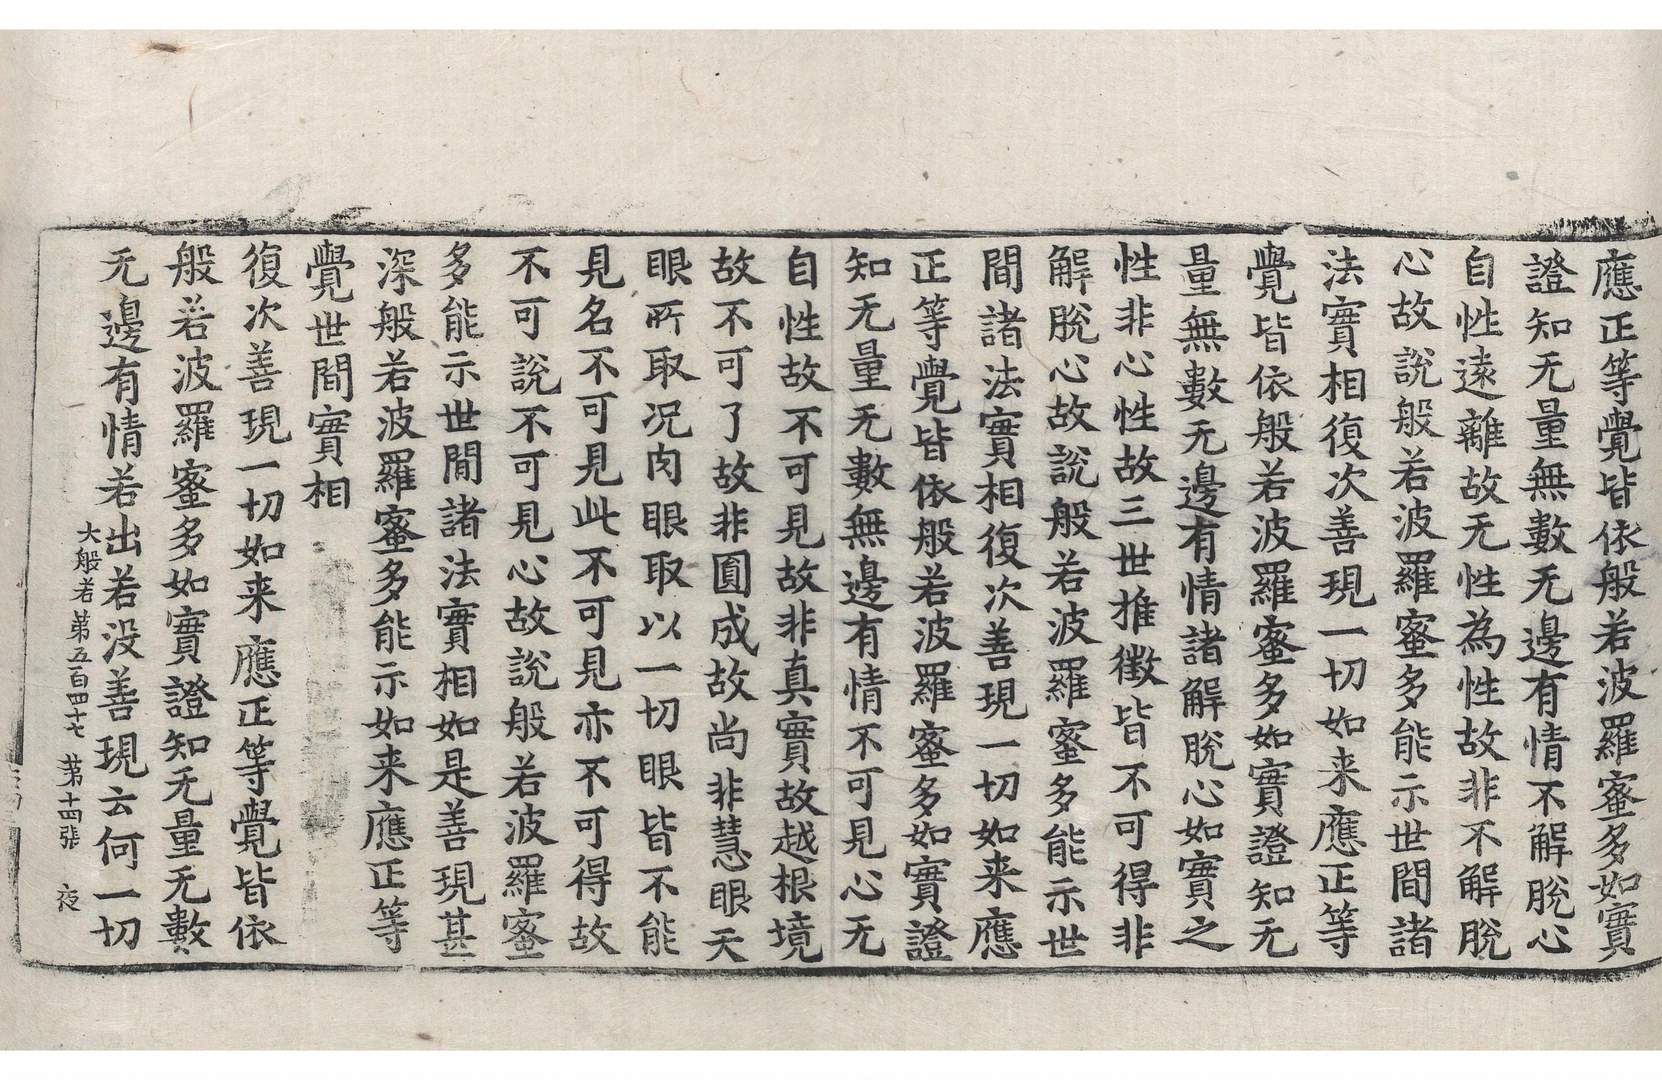 應正等覺皆依般若波羅蜜多如實
證知无量無數无邊有情不解脫心
自性遠離故无性為性故非不解脫
心故說般若波羅蜜多能示世間諸
法實相復次善現一切如来應正等
覺皆依般若波羅蜜多如實證知无
量無數无邊有情諸解脫心如實之
性非心性故三世推徵皆不可得非
解脫心故說般若波羅蜜多能示世
間諸法實相復次善現一切如来應
正等覺皆依般若波羅蜜多如實證
知无量无數無邊有情不可見心无
自性故不可見故非真實故越根境
故不可了故非圓成故尚非慧眼天
眼所取况肉眼取以一切眼皆不能
見名不可見此不可見亦不可得故
不可說不可見心故說般若波羅蜜
多能示世間諸法實相如是善現甚
深般若波羅蜜多能示如来應正等
覺世間實相
復次善現一切如来應正等覺皆依
般若波羅蜜多如實證知无量无數
无邊有情若出若没善現云何一切
大般若第五百四十七 第十四張 夜